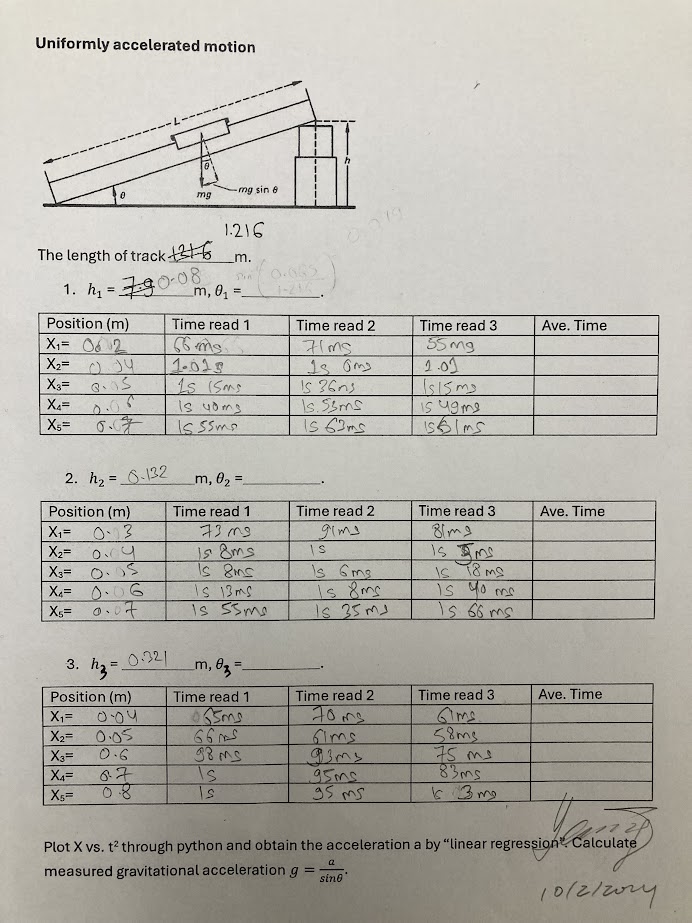 Uniformly accelerated motion
L
h
θ
mg sin θ
θ
mg
1.216
The length of track 1216 m.
1. h₁ = 7.9 0.08 m, θ₁ = .
Position (m) Time read 1 Time read 2 Time read 3 Ave. Time
X₁= 66 ms 71ms 55mg
X₂= 1.01s 1s 0ms 1.01
X₃= 1s 15ms 1s 36ms 1s15ms
X₄= 1s 40ms 1s.55ms 1s 49ms
X₅= 0.7 1s 55ms 1s 63ms 1s61ms
2. h₂ = 0.132 m, θ₂ = .
Position (m) Time read 1 Time read 2 Time read 3 Ave. Time
X₁= 0. 3 73 ms 91ms 81ms
X₂= 0. 4 1s 8ms 1s 1s ms
X₃= 0. 5 1s 8ms 1s 6ms 1s 18ms
X₄= 0. 6 1s 13ms 1s 8ms 1s 40 ms
X₅= 0. 7 1s 55ms 1s 35 ms 1s 66 ms
3. h₃ = 0.321 m, θ₃ = .
Position (m) Time read 1 Time read 2 Time read 3 Ave. Time
X₁= 0.04 65ms 70 ms 61ms
X₂= 0.05 66ms 61ms 58ms
X₃= 0.6 98 ms 93ms 75 ms
X₄= 0.7 1s 95ms 83ms
X₅= 0.8 1s 95 ms 1s 3ms
Plot X vs. t² through python and obtain the acceleration a by “linear regression”. Calculate
measured gravitational acceleration g = a/sinθ.
10/2/2024